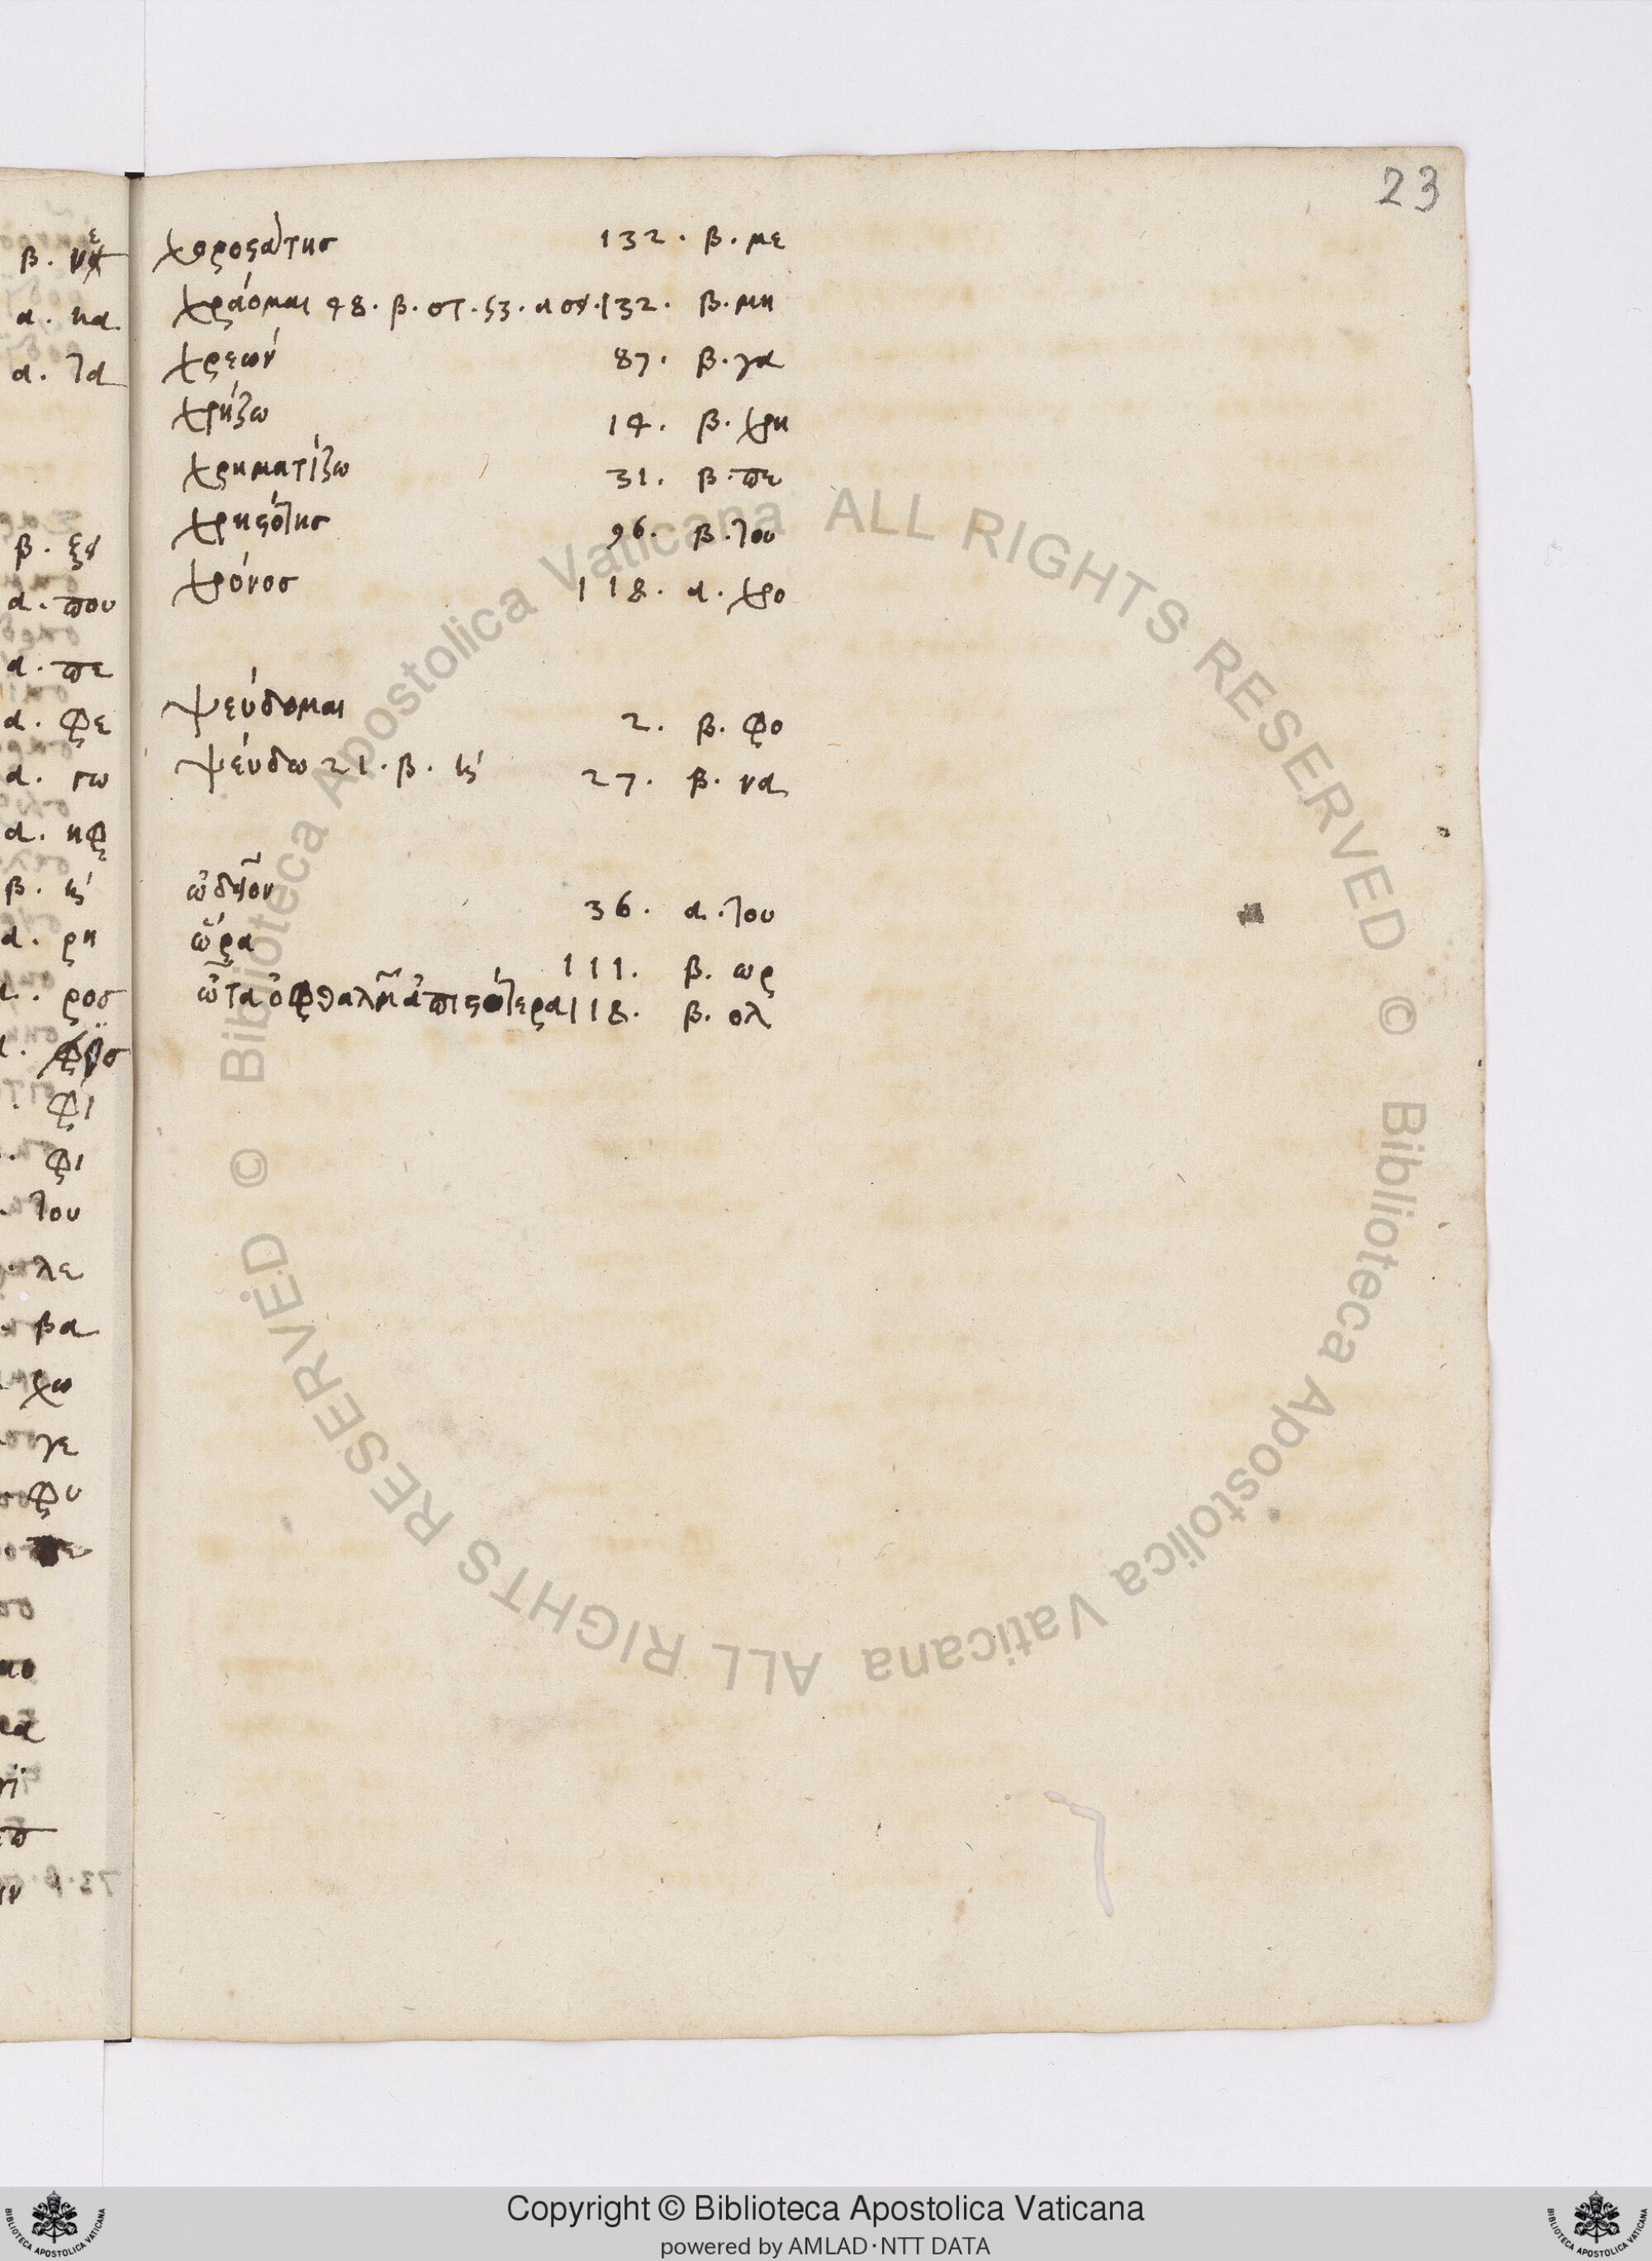 23
χοροστάτης 132. β. με
χράομαι 48. β. στ. 53. α 132. β. μη
χρεών 87. β. γα
χρήζω 14. β. χρη
χρηματίζω 31. β. πε
χρηστότης 96. β. του
χρόνος 118. α. χρο
ψεύδομαι 2. β. φο
ψεύδω 21. β. 27. β. να
ὠδεῖον 36. α. του
ὥρα 111. β. ωρ
ὦτα ὀφθαλμῶν ἀπιστότερα 118. β. ολ
β. νε
α. κα
α. τα
β. ξε
α. που
α. πε
α. φε
α. γω
α. κφ
β.
α. ρη
ρος
φι
φι
του
λε
βα
χω
γε
φυ
© Biblioteca Apostolica Vaticana ALL RIGHTS RESERVED
© Biblioteca Apostolica Vaticana ALL RIGHTS RESERVED
Copyright © Biblioteca Apostolica Vaticana
powered by AMLAD·NTT DATA
BIBLIOTECA APOSTOLICA VATICANA
BIBLIOTECA APOSTOLICA VATICANA